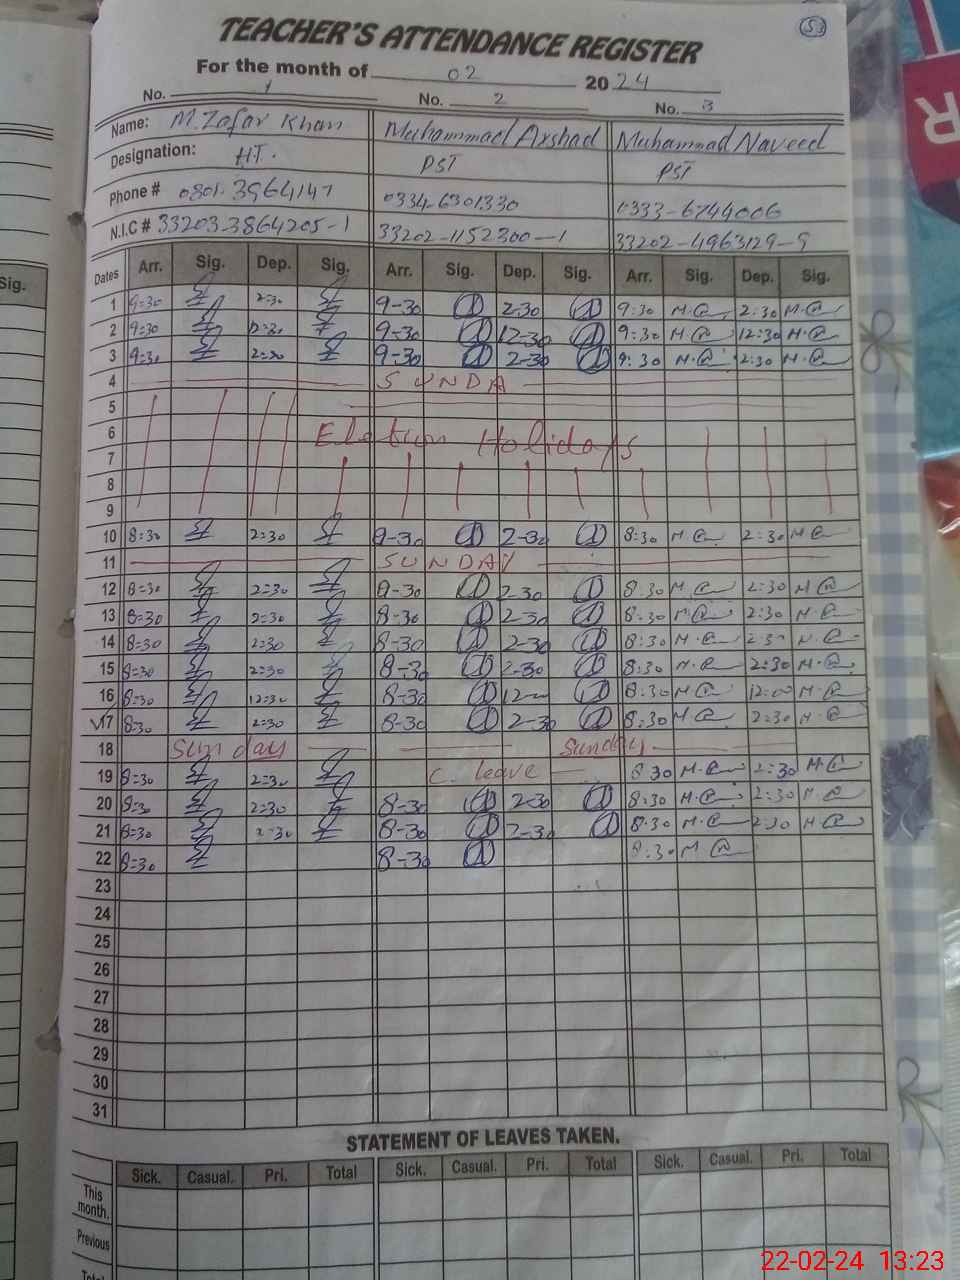 53
TEACHER'S ATTENDANCE REGISTER
For the month of 02 2024
No. 1 No. 2 No. 3
Name: M. Zafar Khan Muhammad Arshad Muhammad Naveed
Designation: HT. PST PST
Phone # 0334-6301330 0333-6744006
N.I.C # 33203-3864205-1 33202-1152300-1 33202-4963129-9
Sig.
Dates Arr. Sig. Dep. Sig. Arr. Sig. Dep. Sig. Arr. Sig. Dep. Sig.
1 9=30 2=30 9-30 2-30 9:30 2:30
2 9=30 12=30 9-30 12-30 9:30 12:30
3 9=30 2=30 9-30 2-30 9:30 2:30
4 SUNDA
5
6 Eletion Holidays
7
8
9
10 8=30 2=30 2-30 8:30 2:30
11 SUNDAY
12 8=30 2=30 8-30 2-30 8:30 2:30
13 8=30 2=30 8-30 2-30 8:30 2:30
14 8=30 2=30 8-30 2-30 8:30 2:30
15 8=30 2=30 8-30 2-30 8:30 2:30
16 8=30 12=30 8-30 8:30 12:00
17 8=30 2=30 8-30 2-30 8:30 2:30
18 Sunday Sunday
19 8=30 2=30 C. leave 8:30 2:30
20 8=30 2=30 8-30 2-30 8:30 2:30
21 8=30 2=30 8-30 2-30 8:30 2:30
22 8=30 8-30 8:30
23
24
25
26
27
28
29
30
31
STATEMENT OF LEAVES TAKEN.
Sick. Casual. Pri. Total Sick. Casual. Pri. Total Sick. Casual. Pri. Total
This
month.
Previous
22-02-24 13:23